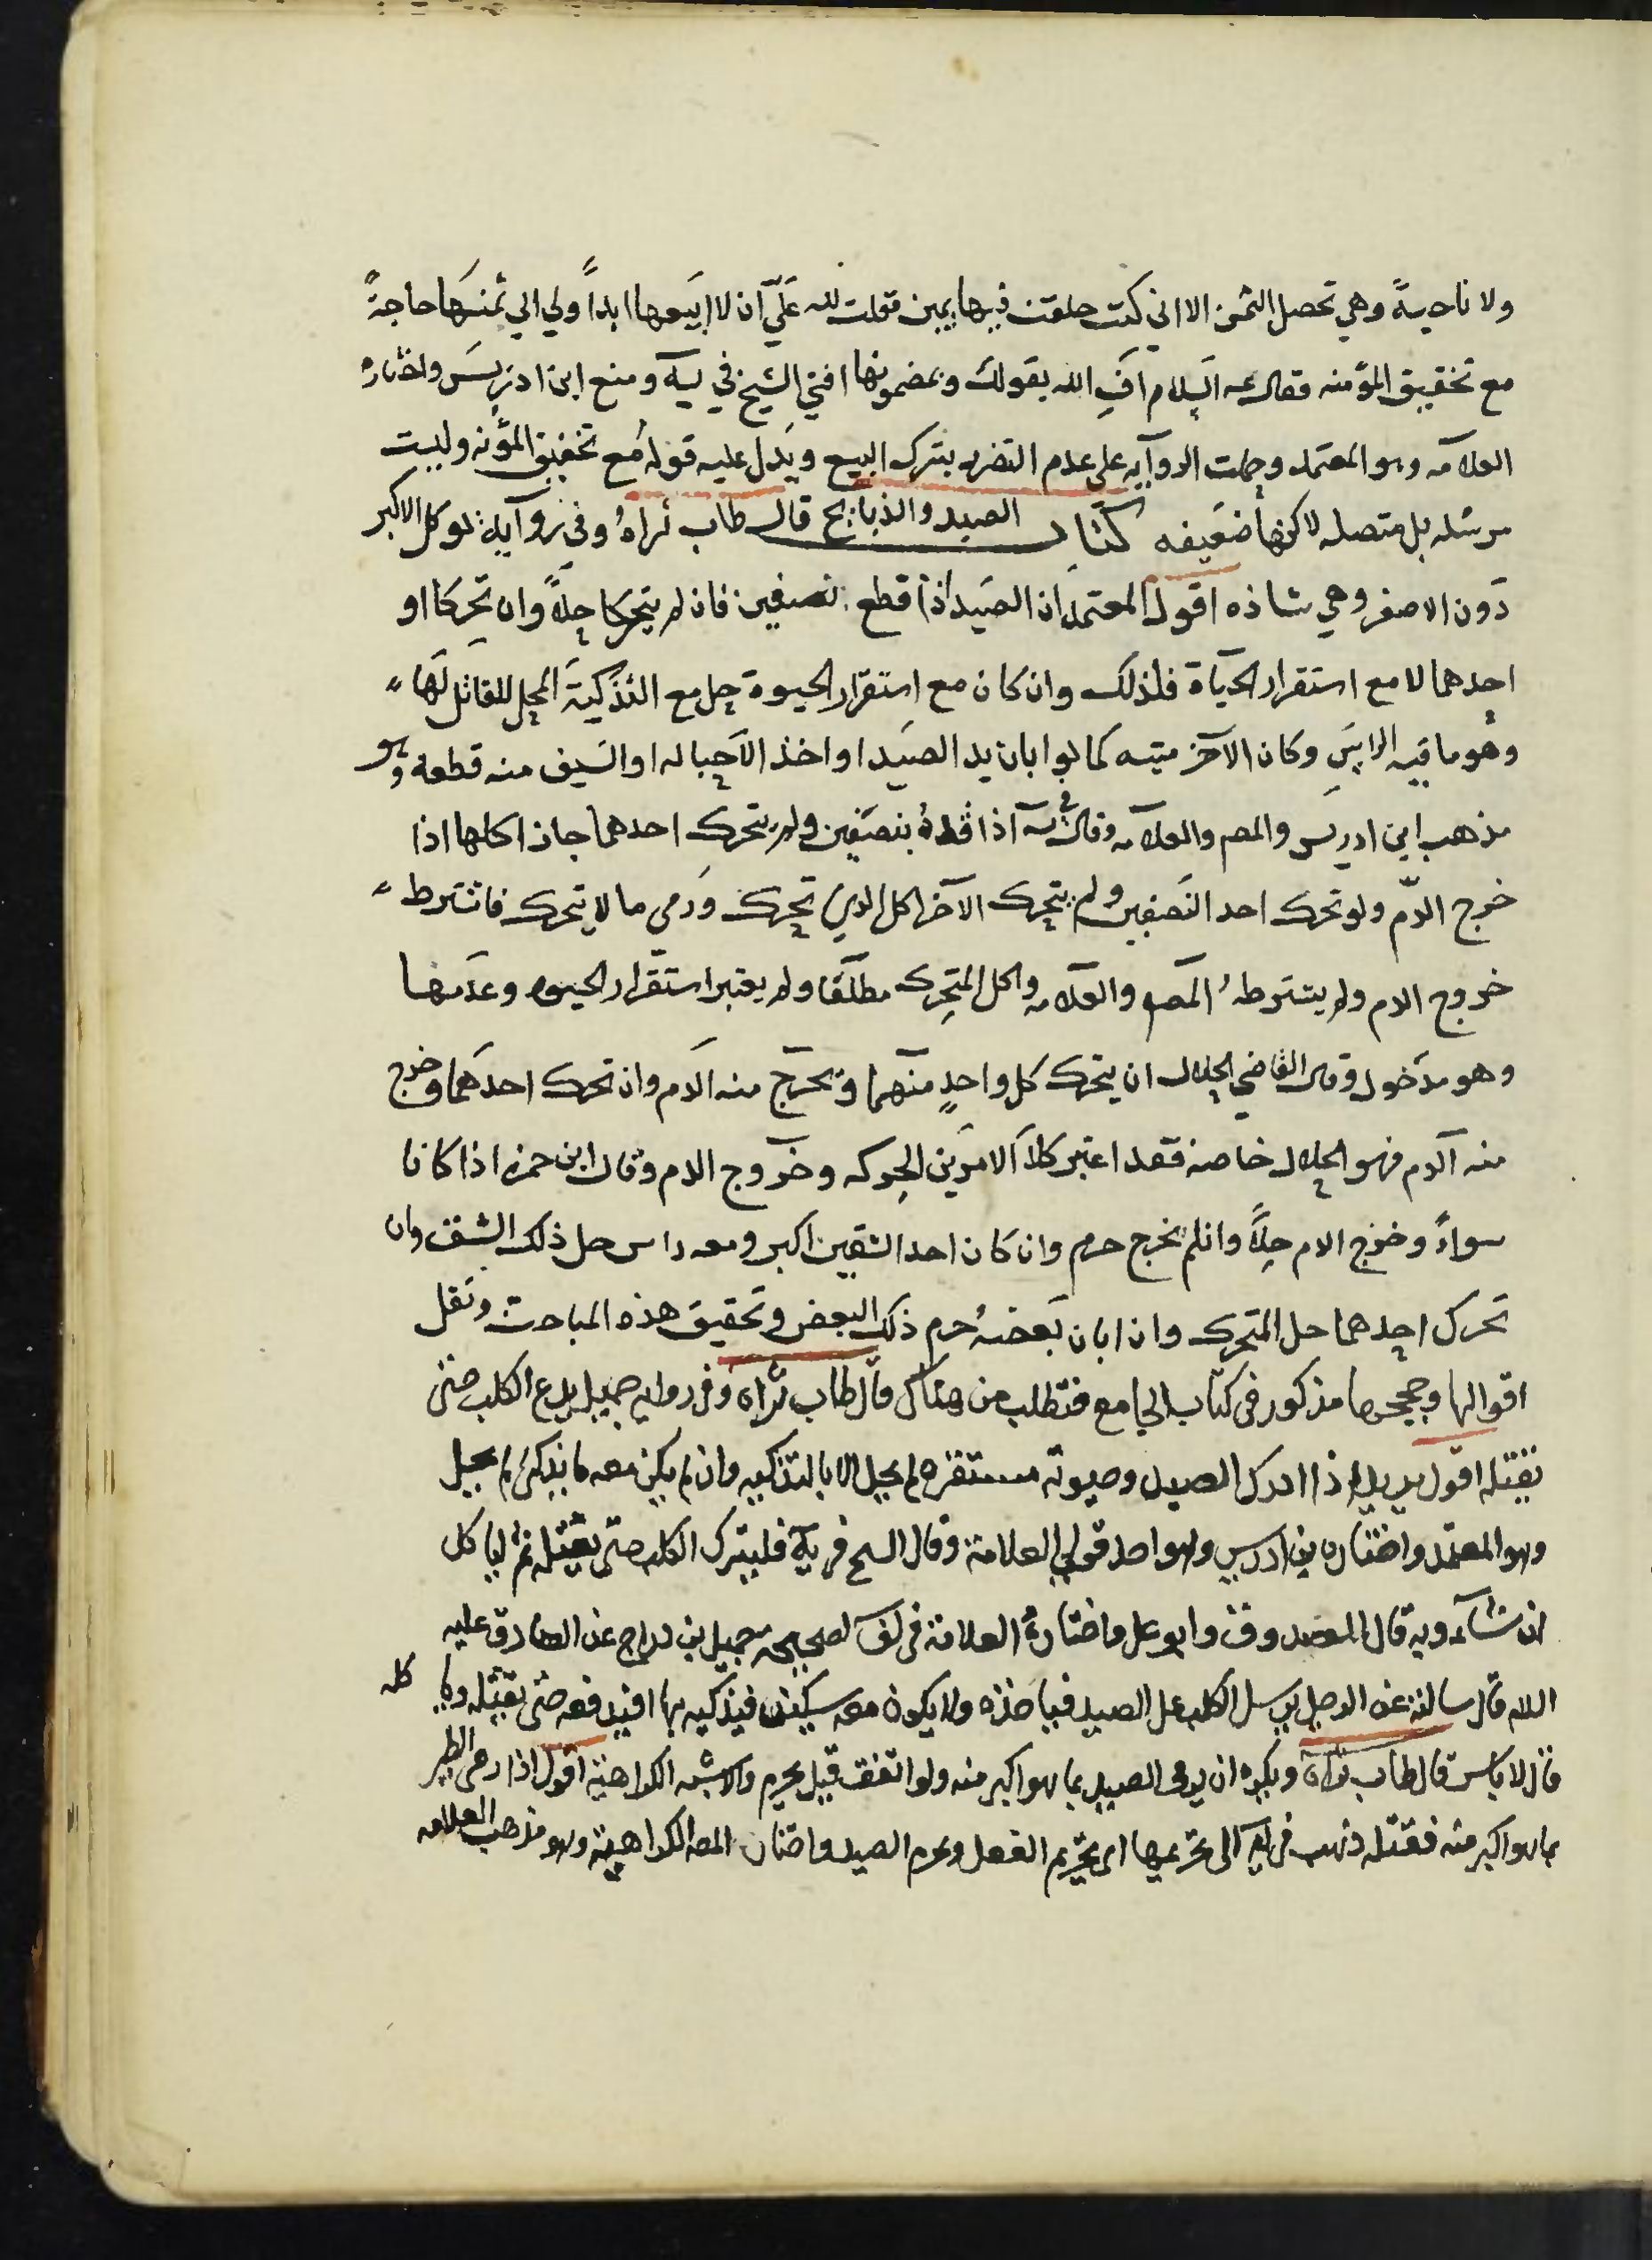 ولا ناحية وهي تحصل الثمن الا اني كنت حلفت فيها بيمين فقلت لله عليّ ان لا ابيعها ابداً ولي الي ثمنها حاجة
مع تخفيف المؤمنه فقال عه السلام اف الله بقولك وبمضمونها افتي الشيخ في يه ومنع ابن ادريس واختاره
العلامه وهو المعتمد وحملت الروآيه على عدم التضرر بترك البيع ويدل عليه قوله مع تخفيف المؤنه وليست
مرسله بل متصله لاكنها ضعيفه كتاب الصيد والذبايح قال طاب ثراه وفي روآية لوكل الاكبر
دون الاصغر وهي شاذه اقول المعتمد ان الصيد اذا قطع نصفين فان لم يتحركا حلاّ وان تحركا او
احدهما لا مع استقرار الحياة فلذلك وان كان مع استقرار الحيوة حل مع التذكية المحل للقاتل لها
وهو ما فيه الرايس وكان الآخر ميتبه كما لو ابان يد الصيد او اخذ الآحباله او السيف منه قطعة وهو
مذهب ابن ادريس والمصم والعلامه وقال في يه اذا قده بنصفين ولم يتحرك احدهما جاز اكلها اذا
خرج الدّم ولو تحرك احد النصفين ولم يتحرك الآخر اكل الذي تحرك ورمى ما لا يتحرك فاشترط
خروج الدم ولم يشترطه المصم والعلامه واكل المتحرك مطلقا ولم يعتبر استقرار الحيوه وعدمها
وهو مدخول وقال القاضي الحلال ان يتحرك كل واحدٍ منهما ويخرج منه الدم وان تحرك احدهما وخرج
منه آلدم فهو الحلال خاصه فقد اعتبر كلا الامرين الحركه وخروج الدم وقال ابن حمزه اذا كانا
سواءً وخرج الدم حلاّ وانلم يخرج حرم وان كان احد الشقين اكبر ومعه راس حل ذلك الشق وان
تحرك احدهما حل المتحرك وان ابان بعضه حرم ذلك البعض وتحقيق هذه المباحث ونقل
اقوالها وحججها مذكور في كتاب الجامع فتطلب من هناك قال طاب ثراه وفي روايه جميل يدع الكلب حتى
يقتله اقول يريد اذا ادرك الصيد وحيوته مستقره لم يحل الا بالتذكيه وان لم يكن معه ما يذكى لم يحل
وهو المعتمد واختاره بن ادريس وهو احد قولي العلامة وقال الشيخ في يه فليترك الكلب حتى يقتله ثم لياكل
ان شاء وبه قال الصدوق وابو على واختاره العلامة في لف لصحيحه جميل بن دراج عن الصادق عليه
اللام قال سالته عن الرجل يرسل الكلب على الصيد فياخذه ولا يكون معه سكين فيذكيه بها افيدفعه حتى يقتله ويا كله
قال لا باس قال طاب ثراه ويكره ان يرمى الصيد بما هو اكبر منه ولو اتفق قيل يحرم والاشبه الكراهية اقول اذا رمى الطير
بما هو اكبر منه فقتله ذهب في يه الى تحريمها اي تحريم الفعل وتحريم الصيد واختار المصه الكراهية وهو مذهب العلامه